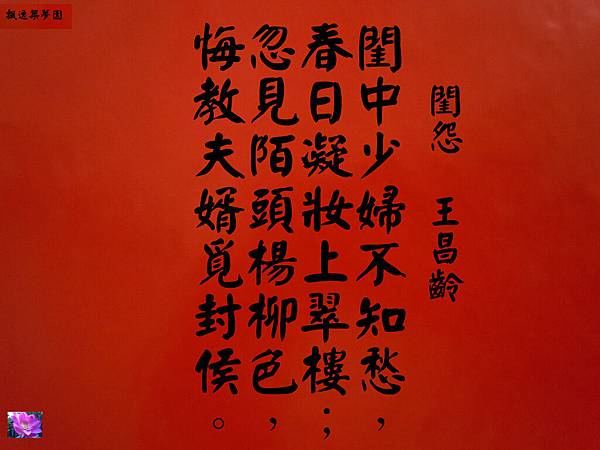 飄逸築夢園
閨怨 王昌齡
閨中少婦不知愁，
春日凝妝上翠樓；
忽見陌頭楊柳色，
悔教夫婿覓封侯。